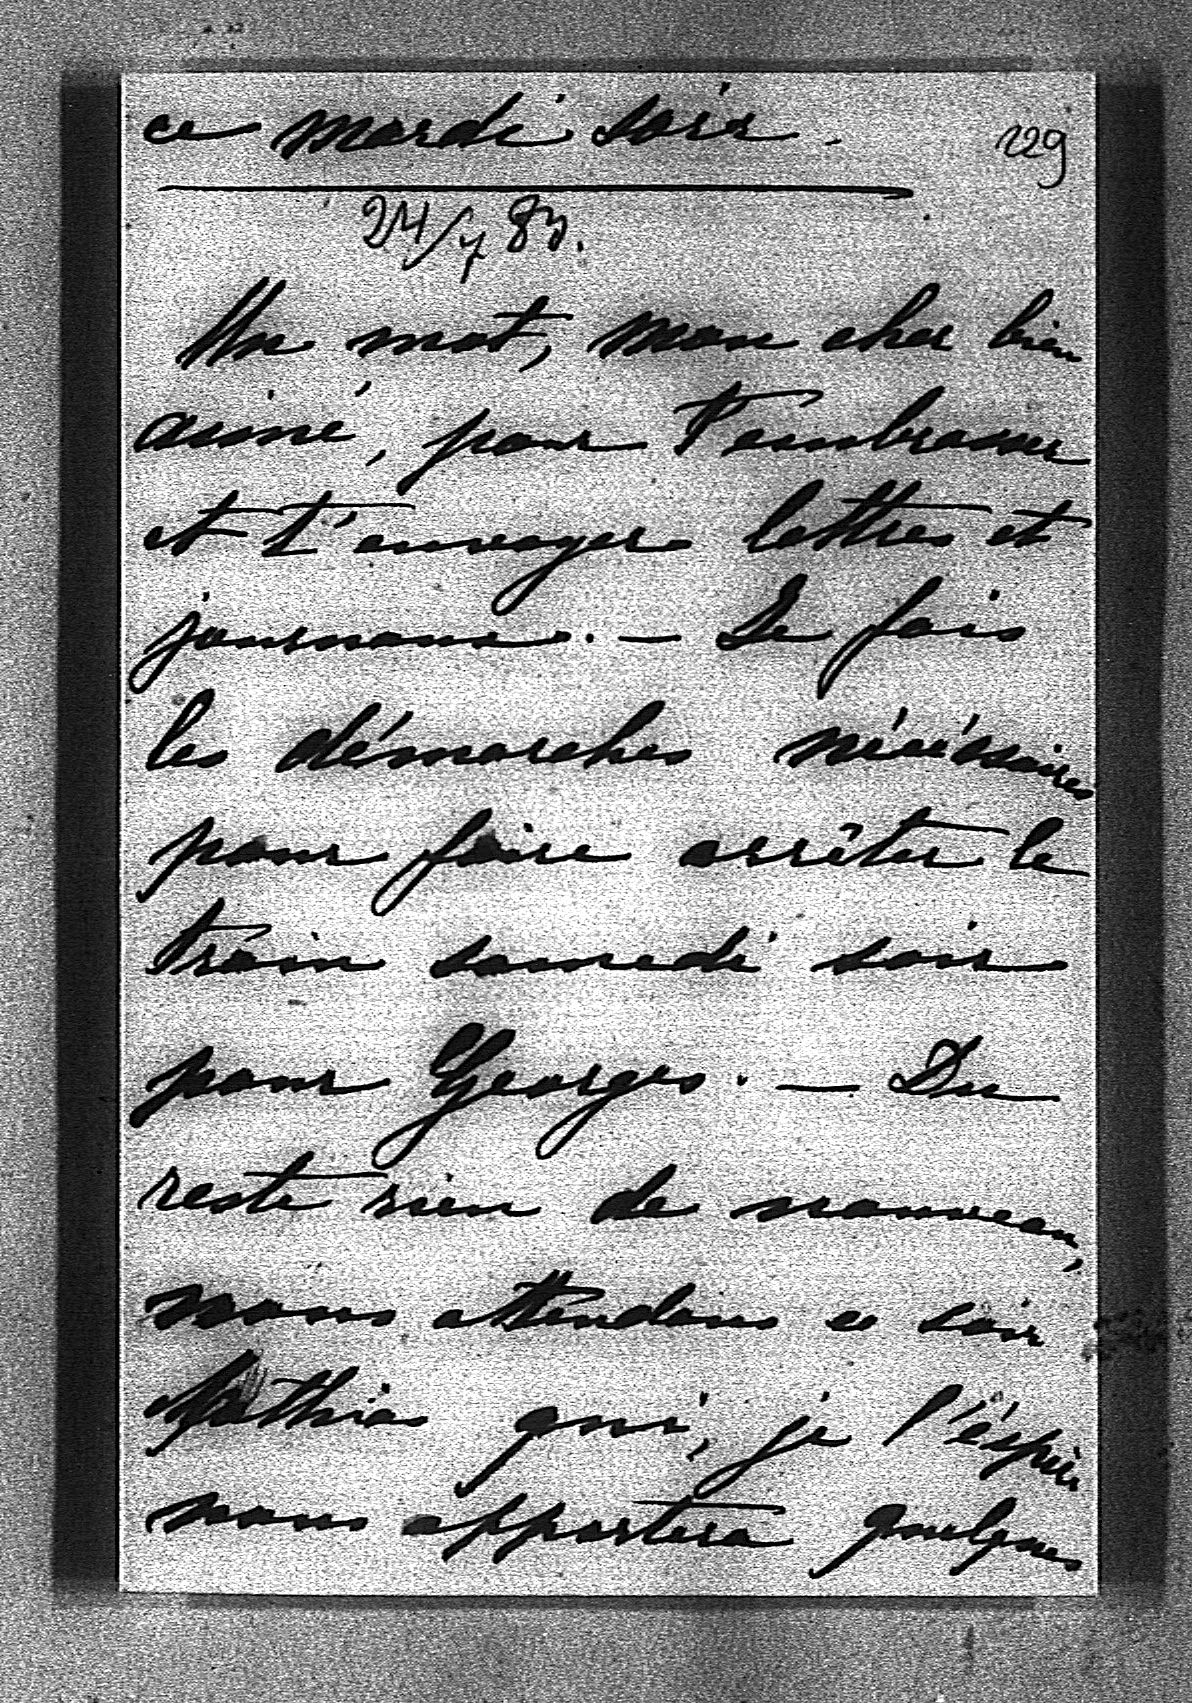 ce mardi soir.
229
24/7 83.
Un mot, mon cher bien
aimé, pour t'embrasser
et t'envoyer lettres et
journaux. — Je fais
les démarches nécéssaires
pour faire arrêter le
train samedi soir
pour Georges. — Du
reste rien de nouveau,
nous attendons ce soir
Mathias qui, je l'éspère
nous apportera quelques